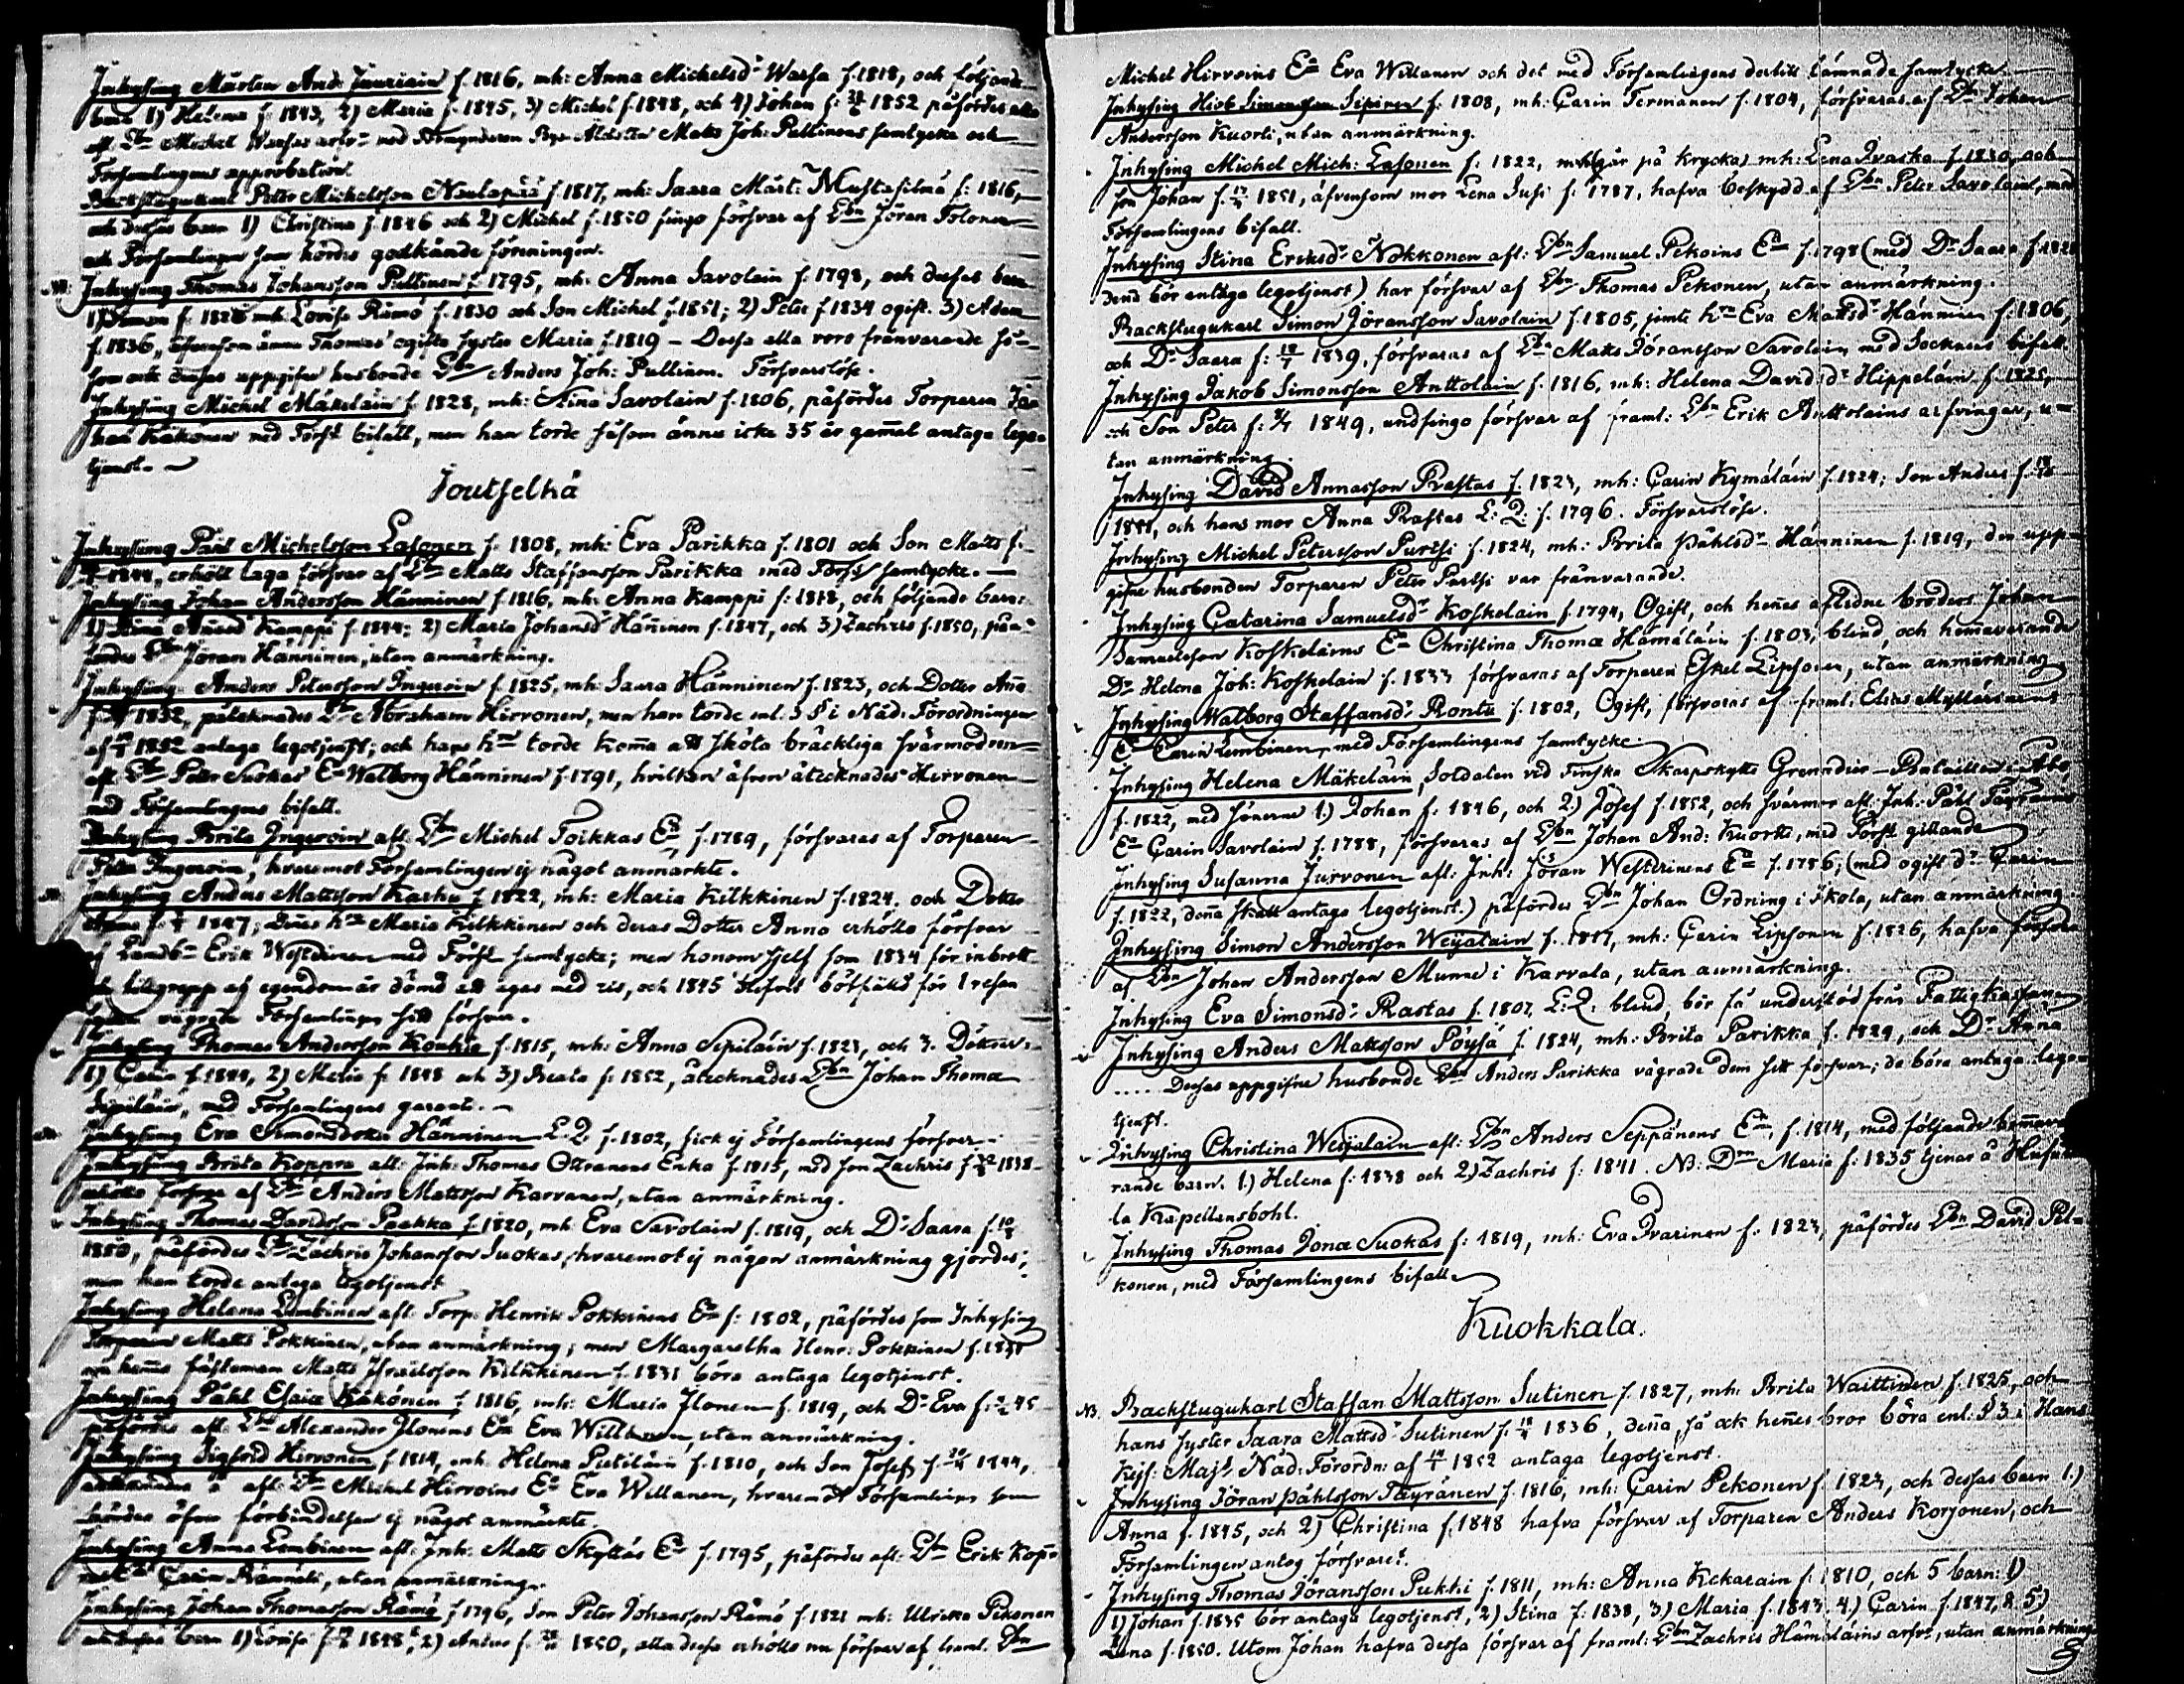 Inhysing Mårten And: Jauriain f. 1816, mh: Anna Michelsd:r Warsa f. 1818, och följande
barn 1) Helena f. 1843, 2) Maria f. 1845, 3) Michel f. 1848, och 4) Johan f. 1852 påfördes
afl. Michel Warsas med Byn Åldsten Matts Joh: Pullinens samtycke och
Församlingens approbation.
Backstugukarl Peter Michelsson Naulapää f. 1817, mh: Saara Märt: Mustasilmä f. 1816,
och dessas barn 1) Christina f. 1846 och 2) Michel f. 1850 fingo försvar af Lbn Jöran Tolonen
och Församlingen som hördes godkände föreningen.
NB. Inhysing Thomas Johansson Pullinen f. 1795, mh: Anna Savolain f. 1798, och dessas barn
1) Simon f. 1828 mh: Lovisa Rämö f. 1830 och Son Michel f. 1851; 2) Peter f. 1834 ogift. 3) Adam
f. 1836, äfvensom ännu Thomas' ogifta syster Maria f. 1819 – Dessa alla voro frånvarande
som ock deras uppgifne husbonde Lbn Anders Joh: Pullinen. Försvarslöse.
Inhysing Michel Mäkeläin f. 1828, mh: Stina Savolain f. 1806, påfördes Torparen Jo-
han Käkönen med Förs:s bifall, men han torde såsom ännu icke 35 år gamal antaga lego-
tjenst.
Joutselkä
Inhysing Påhl Michelsson Lasonen f. 1808, mh: Eva Parikka f. 1801 och Son Matts f.
1844, erhöll laga försvar af Lbn Matts Staffansson Parikka med Förs:s samtycke.
Inhysing Johan Andersson Hänninen f. 1816, mh: Anna Kamppi f. 1818, och följande barn:
1) Stina Kamppi f. 1844; 2) Maria Johansd: Häninen f. 1847, och 3) Zachris f. 1850, på-
fördes Lbn Jöran Hänninen, utan anmärkning.
Inhysing Anders Petersson Ingeroin f. 1825, mh: Saara Hänninen f. 1823, och Dotter Ana
f. 1852, påteknades Lbn Abraham Hirvonen, men han torde enl. 3 § i Nåd. Förordningen
af 1852 antaga legotjenst; och hans h:ru torde koma att sköta bräckliga svärmodren
afl. Lbn Peter Suokas E:a Walborg Hänninen f. 1791, hvilken äfven åtecknades Hirvonen
med Församlingens bifall.
Inhysing Brita Ingeroin afl: Lbn Michel Toikkas E:a f. 1789, försvaras af Torparen
Peter Ingeroin, hvaremot Församlingen ej något anmärkte.
Inhysing Anders Mattsson Karhu f. 1822, mh: Maria Kilkkinen f. 1824, och Dotter
Anna f. 1847; Denes h:ru Maria Kilkkinen och deras Dotter Anna erhöllo försvar
af Landb:n Erik Westerinen med Förs:s samtycke; men honom sjelf som 1834 för inbrott
och tillgrepp af egendom är dömd att agas med ris, och 1845 blifvit bötfälld för 1 resan
vägrade Församlingen sitt försvar.
Inhysing Thomas Andersson Koukia f. 1815, mh: Anna Sepiläin f. 1823, och 3. Döttrar:
1) Carin f. 1844, 2) Maria f. 1848 och 3) Beata f. 1852, åtecknades Lbn Johan Thomæ
Sipiläin, med Församlingens garanti.
Inhysing Eva Simonsdotter Hänninen L:Q: f. 1802, fick ej Församlingens försvar.
Inhysing Brita Koppra afl: Inh: Thomas Ottranens Enka f. 1815, med son Zachris f. 1838
erhöllo försvar af Lbn Anders Mattsson Karvanen, utan anmärkning.
Inhysing Thomas Davidsson Paakka f. 1820, mh: Eva Savolain f. 1819, och D:r Saara f.
1850, påfördes Lbn Zachris Johansson Suokas, hvaremot ej någon anmärkning gjordes;
men han torde antaga legotjenst
Inhysing Helena Lembinen afl: Torp: Henrik Pokkinens E:a f: 1802, påfördes som Inhysing
Torparen Matts Pokkinen, utan anmärkning; men Margaretha Henr: Pokkinen f. 1831
och henes fästeman Matts Israelsson Kilkkinen f. 1831 böra antaga legotjenst.
Inhysing Påhl Esaiæ Käkönen f. 1816, mh: Maria Ilonen f. 1819, och D:r Eva f. 45
påfördes afl: Lbn Alexander Ilonens E:a Eva Willanen, utan anmärkning.
Inhysing Sigfrid Hirvonen f. 1814, mh: Helena Pietiläin f. 1810, och Son Josef f. 1844,
afl: Lbn Michel Hirvoins E:a Eva Willanen, hvaremot Församlingen som
hördes öfver förbindelsen ej något anmärkte.
Inhysing Anna Lembinen afl: Inh: Matts Skyttäs E:a f. 1795, påfördes afl: Lbn Erik Kop-
Carin Rämäti, utan anmärkning.
Inhysing Johan Thomasson Rämö f. 1796, Son Peter Johansson Rämö f. 1821 mh: Ulrika Pekonen
och dessas barn 1) Lovisa f. 1848, 2) Anders f. 1850, alla dessa erhöllo nu försvar af framl: Lbn
Michel Hirvoins E:a Eva Willanen och det med Församlingens dertill lämnade samtycke.
Inhysing Hiob Simonsson Sipinen f. 1808, mh: Carin Termanen f. 1804, försvaras af Lbn Johan
Andersson Kuorti, utan anmärkning.
Inhysing Michel Mich: Lasonen f. 1822, går på kryckor mh: Lena Ivaska f. 1830, och
son Johan f. 1851, äfvensom mor Lena Susi f. 1787, hafva beskydd af Lbn Peter Savolain, med
Församlingens bifall.
Inhysing Stina Eriksd:r Nokkonen afl: Lbn Samuel Pekoins E:a f. 1798 (med D:r Saara f. 1828
dend bör antaga legotjenst) har försvar af Lbn Thomas Pekonen, utan anmärkning.
Backstugukarl Simon Jöransson Savolain f. 1805, jemte h:ru Eva Mattsd:r Hänninen f. 1806,
och D:r Saara f: 1839, försvaras af Lbn Matts Jöransson Savolain, med Socknens bifall.
Inhysing Jakob Simonsson Anttolain f. 1816, mh: Helena Davidsd:r Hippeläin f. 1825,
och Son Peter f: 1849, undfingo försvar af framl: Lbn Erik Anttolains arfvingar, u-
tan anmärkning.
Inhysing David Annasson Rastas f. 1823, mh: Carin Kymäläin f. 1824; Son Anders f.
1851, och hans mor Anna Rastas L: Q: f. 1796. Försvarslöse.
Inhysing Michel Petersson Purtsi f. 1824, mh: Brita Påhlsd:r Hänninen f. 1819, den upp-
gifne husbonden Torparen Peter Purtsi var frånvarande.
Inhysing Catarina Samuelsd:r Koskelain f. 1794, Ogift, och henes aflidne broders Johan
Samuelsson Koskelains E:a Christina Thomæ Hämäläin f. 1803, blind, och hemavarande
D:r Helena Joh: Koskelain f. 1833 försvaras af Torparen Eskel Lipsonen, utan anmärkning
Inhysing Walborg Staffansd:r Rontu f. 1802, Ogift, försvaras af framl: Elias Myttäisenens
E:a Carin Lembinen, med Församlingens samtycke.
Inhysing Helena Mäkeläin, Soldaten vid Finska Skarpskytte Grenadier-Bataillon
f. 1822, med sönerne 1.) Johan f. 1846, och 2.) Josef f. 1852, och svärmor afl: Inh: Påhl Täyränens
E:a Carin Savolain f. 1788, försvaras af Lbn Johan And: Kuortti, med Förs:s gillande
Inhysing Susanna Jurvonen afl: Inh: Jöran Westerinens E:a f. 1786; (med ogift d:r Carin
f. 1822, dena skall antaga legotjenst.) påfördes Lbn Johan Ordning i Ikola, utan anmärkning
Inhysing Simon Andersson Weijalain f. 1817, mh: Carin Lipsonen f. 1826, hafva försvar
af Lbn Johan Andersson Munne i Karvala, utan anmärkning.
Inhysing Eva Simonsd:r Rastas f. 1807, L: Q: blind, bör få understöd från Fattigkassan
Inhysing Anders Mattsson Pöyjä f. 1824, mh: Brita Parikka f. 1829, och D:r Anna
.... Dessas uppgifne husbonde Lbn Anders Parikka vägrade dem sitt försvar; de böra antaga lego-
tjenst.
Inhysing Christina Weijalain afl: Lbn Anders Seppänens E:a f. 1814, med följande hemava-
rande barn. 1.) Helena f. 1838 och 2.) Zachris f. 1841. NB: D:ren Maria f: 1835 tjenar å
la Kapellansbohl.
Inhysing Thomas Jonæ Suokas f: 1819, mh: Eva Ivarinen f. 1823, påfördes Lbn David Pek-
konen, med Församlingens bifall
Kuokkala.
NB. Backstugukarl Staffan Mattsson Sutinen f. 1827, mh: Brita Waittinen f. 1825, och
hans syster Saara Mattsd:r Sutinen f. 1836, dena, så ock henes bror böra enl. § 3 i Hans
Kejs: Maj:ts Nåd: Förordn: af 1852 antaga legotjenst.
Inhysing Jöran Påhlsson Täyränen f. 1816, mh: Carin Pekonen f. 1823, och dessas barn 1.)
Anna f. 1845, och 2) Christina f. 1848 hafva försvar af Torparen Anders Korjonen, och
Församlingen antog försvaret.
Inhysing Thomas Jöransson Pukki f. 1811, mh: Anna Kekarain f. 1810, och 5 barn: 1)
1) Johan f. 1835 bör antaga legotjenst, 2) Stina f. 1838, 3) Maria f. 1843. 4.) Carin f. 1847, & 5)
Lena f. 1850. Utom Johan hafva dessa försvar af framl: Lbn Zachris Hämäläins arfv:r, utan anmärkning